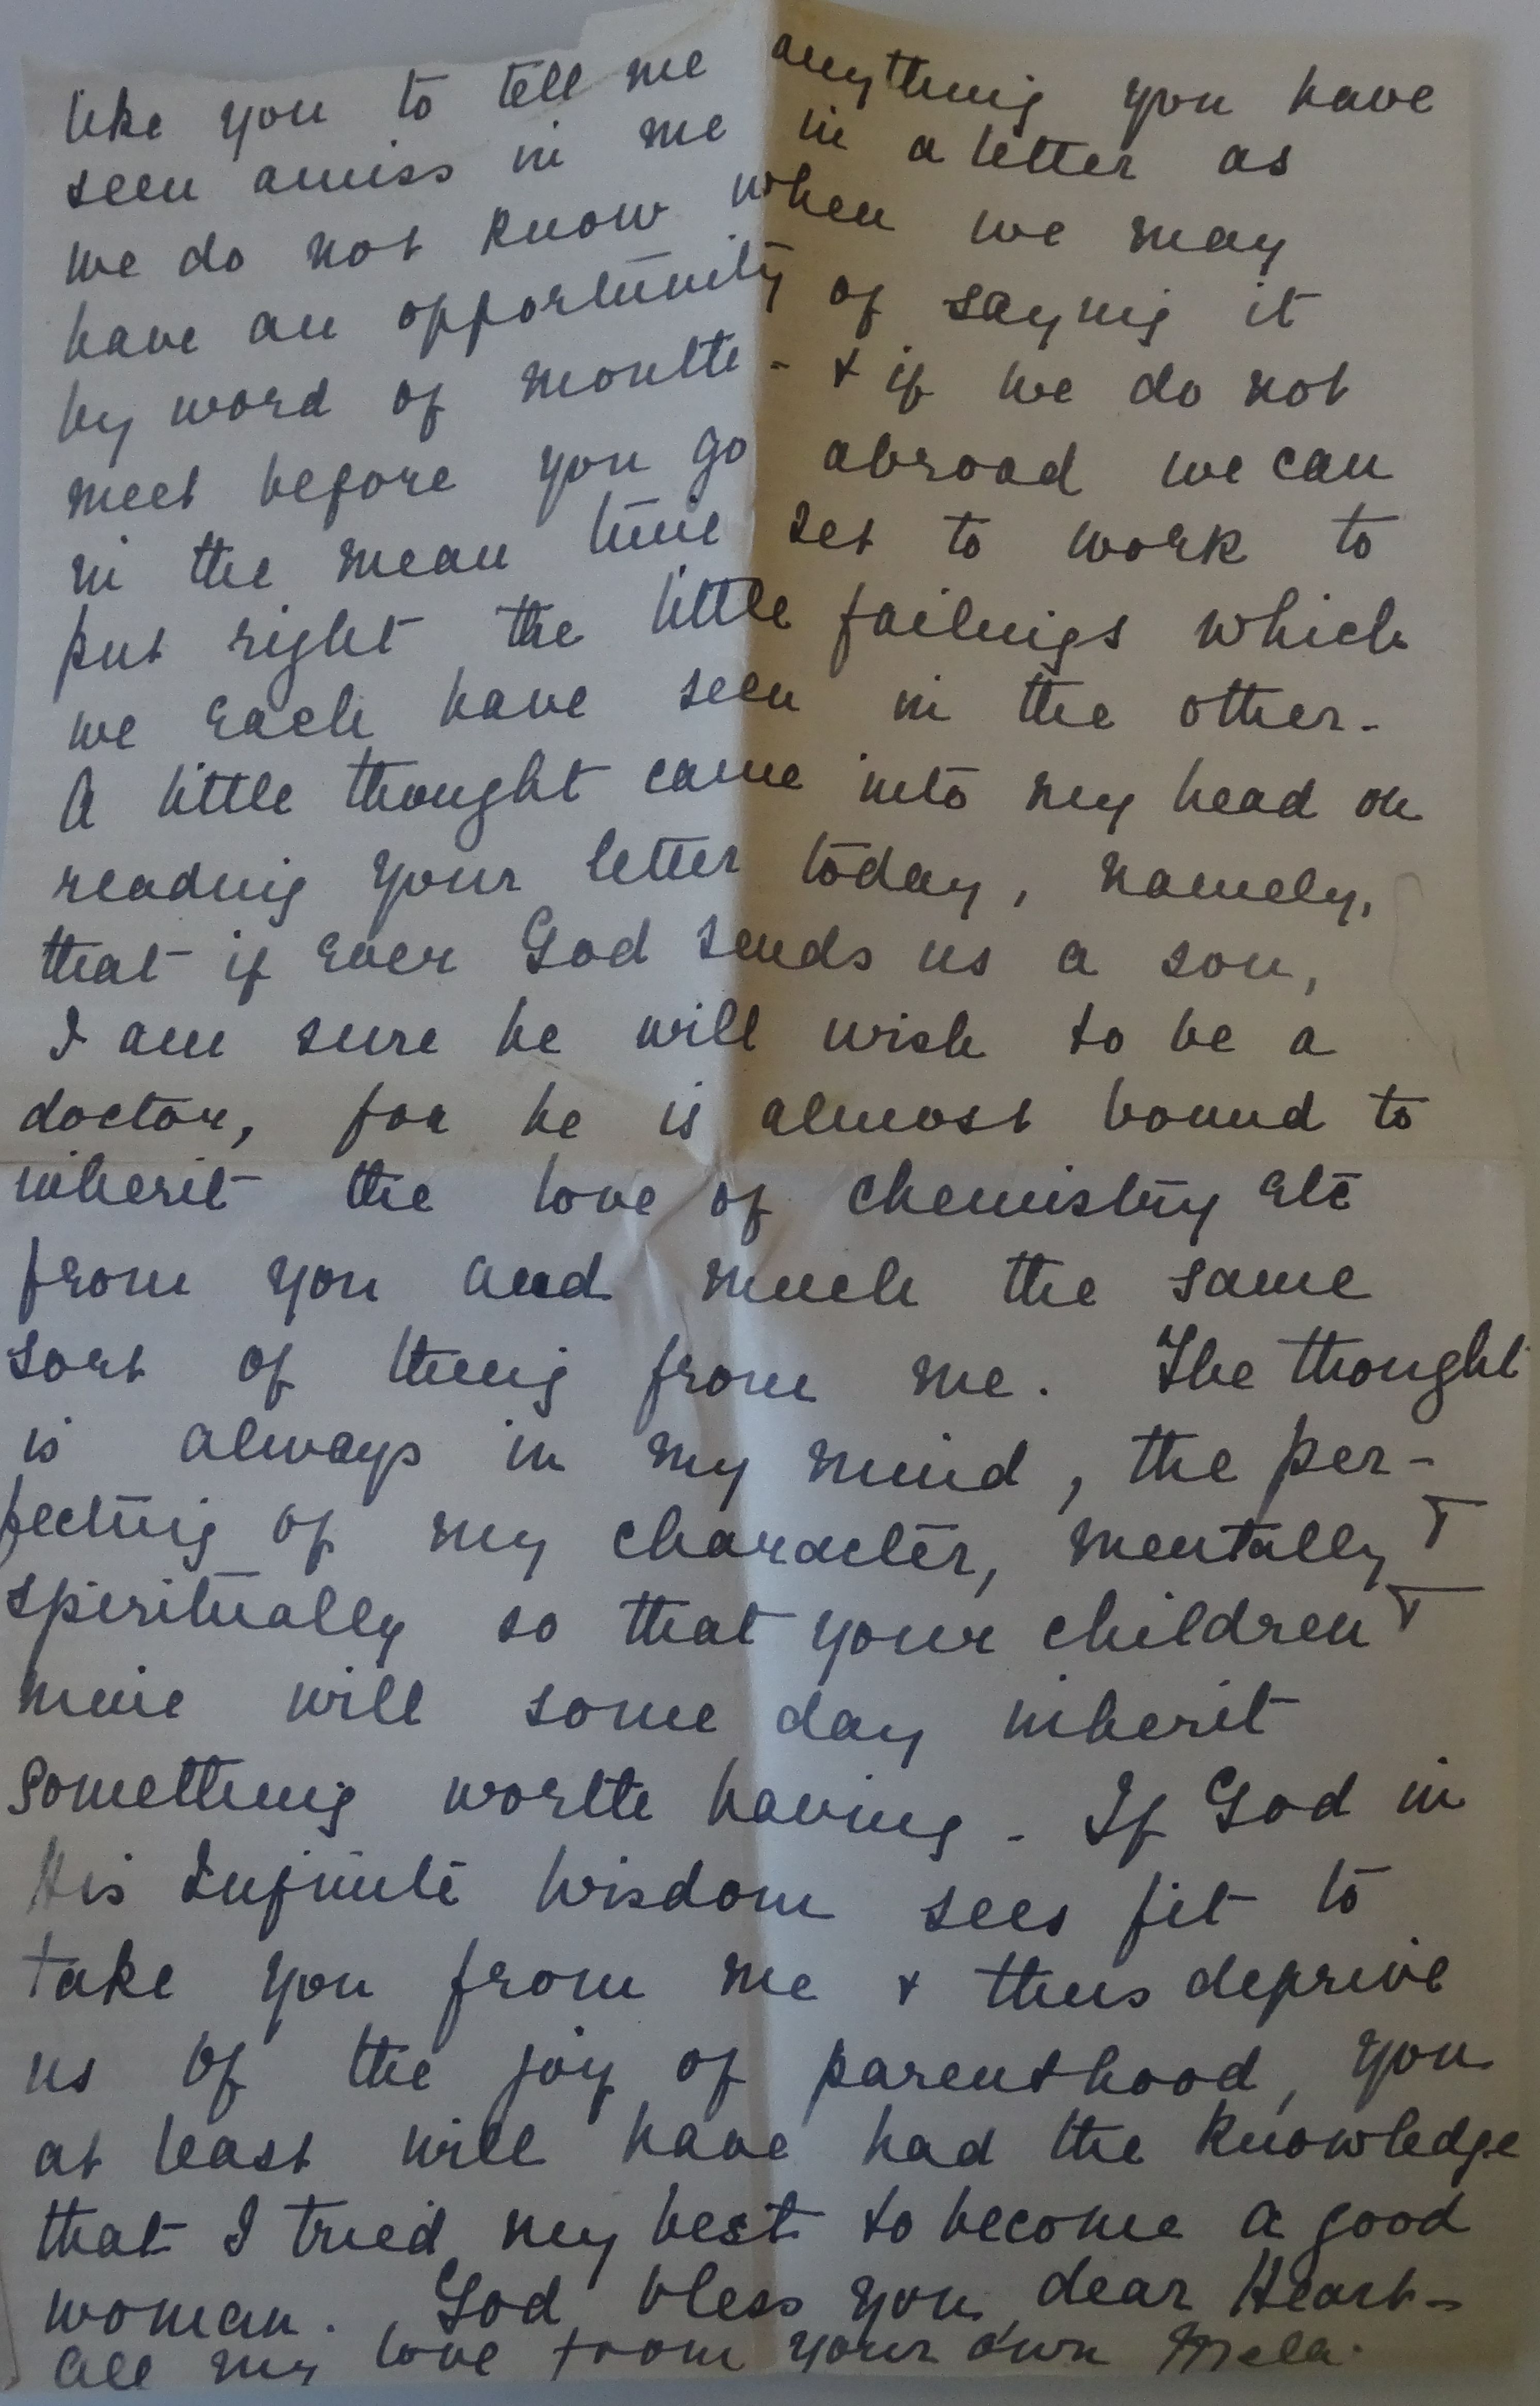 like you to tell me anything you have
seen amiss in me in a letter as
we do not know when we may
have an opportunity of saying it
by word of mouth - & if we do not
meet before you go abroad we can
in the mean time set to work to
put right the little failings which
we each have seen in the other -
A little thought came into my head on
reading your letter today, namely,
that if ever God sends us a son,
I am sure he will wish to be a
doctor, for he is almost bound to
inherit the love of chemistry etc
from you and much the same
sort of thing from me. The thought
is always in my mind, the per-
fecting of my character, mentally &
spiritually so that your children &
mine will some day inherit
something worth having - If God in
His Infinite Wisdom sees fit to
take you from me & thus deprive
us of the joy of parenthood, you
at least will have had the knowledge
that I tried my best to become a good
woman. God bless you dear Heart -
All my love from your own Mela.